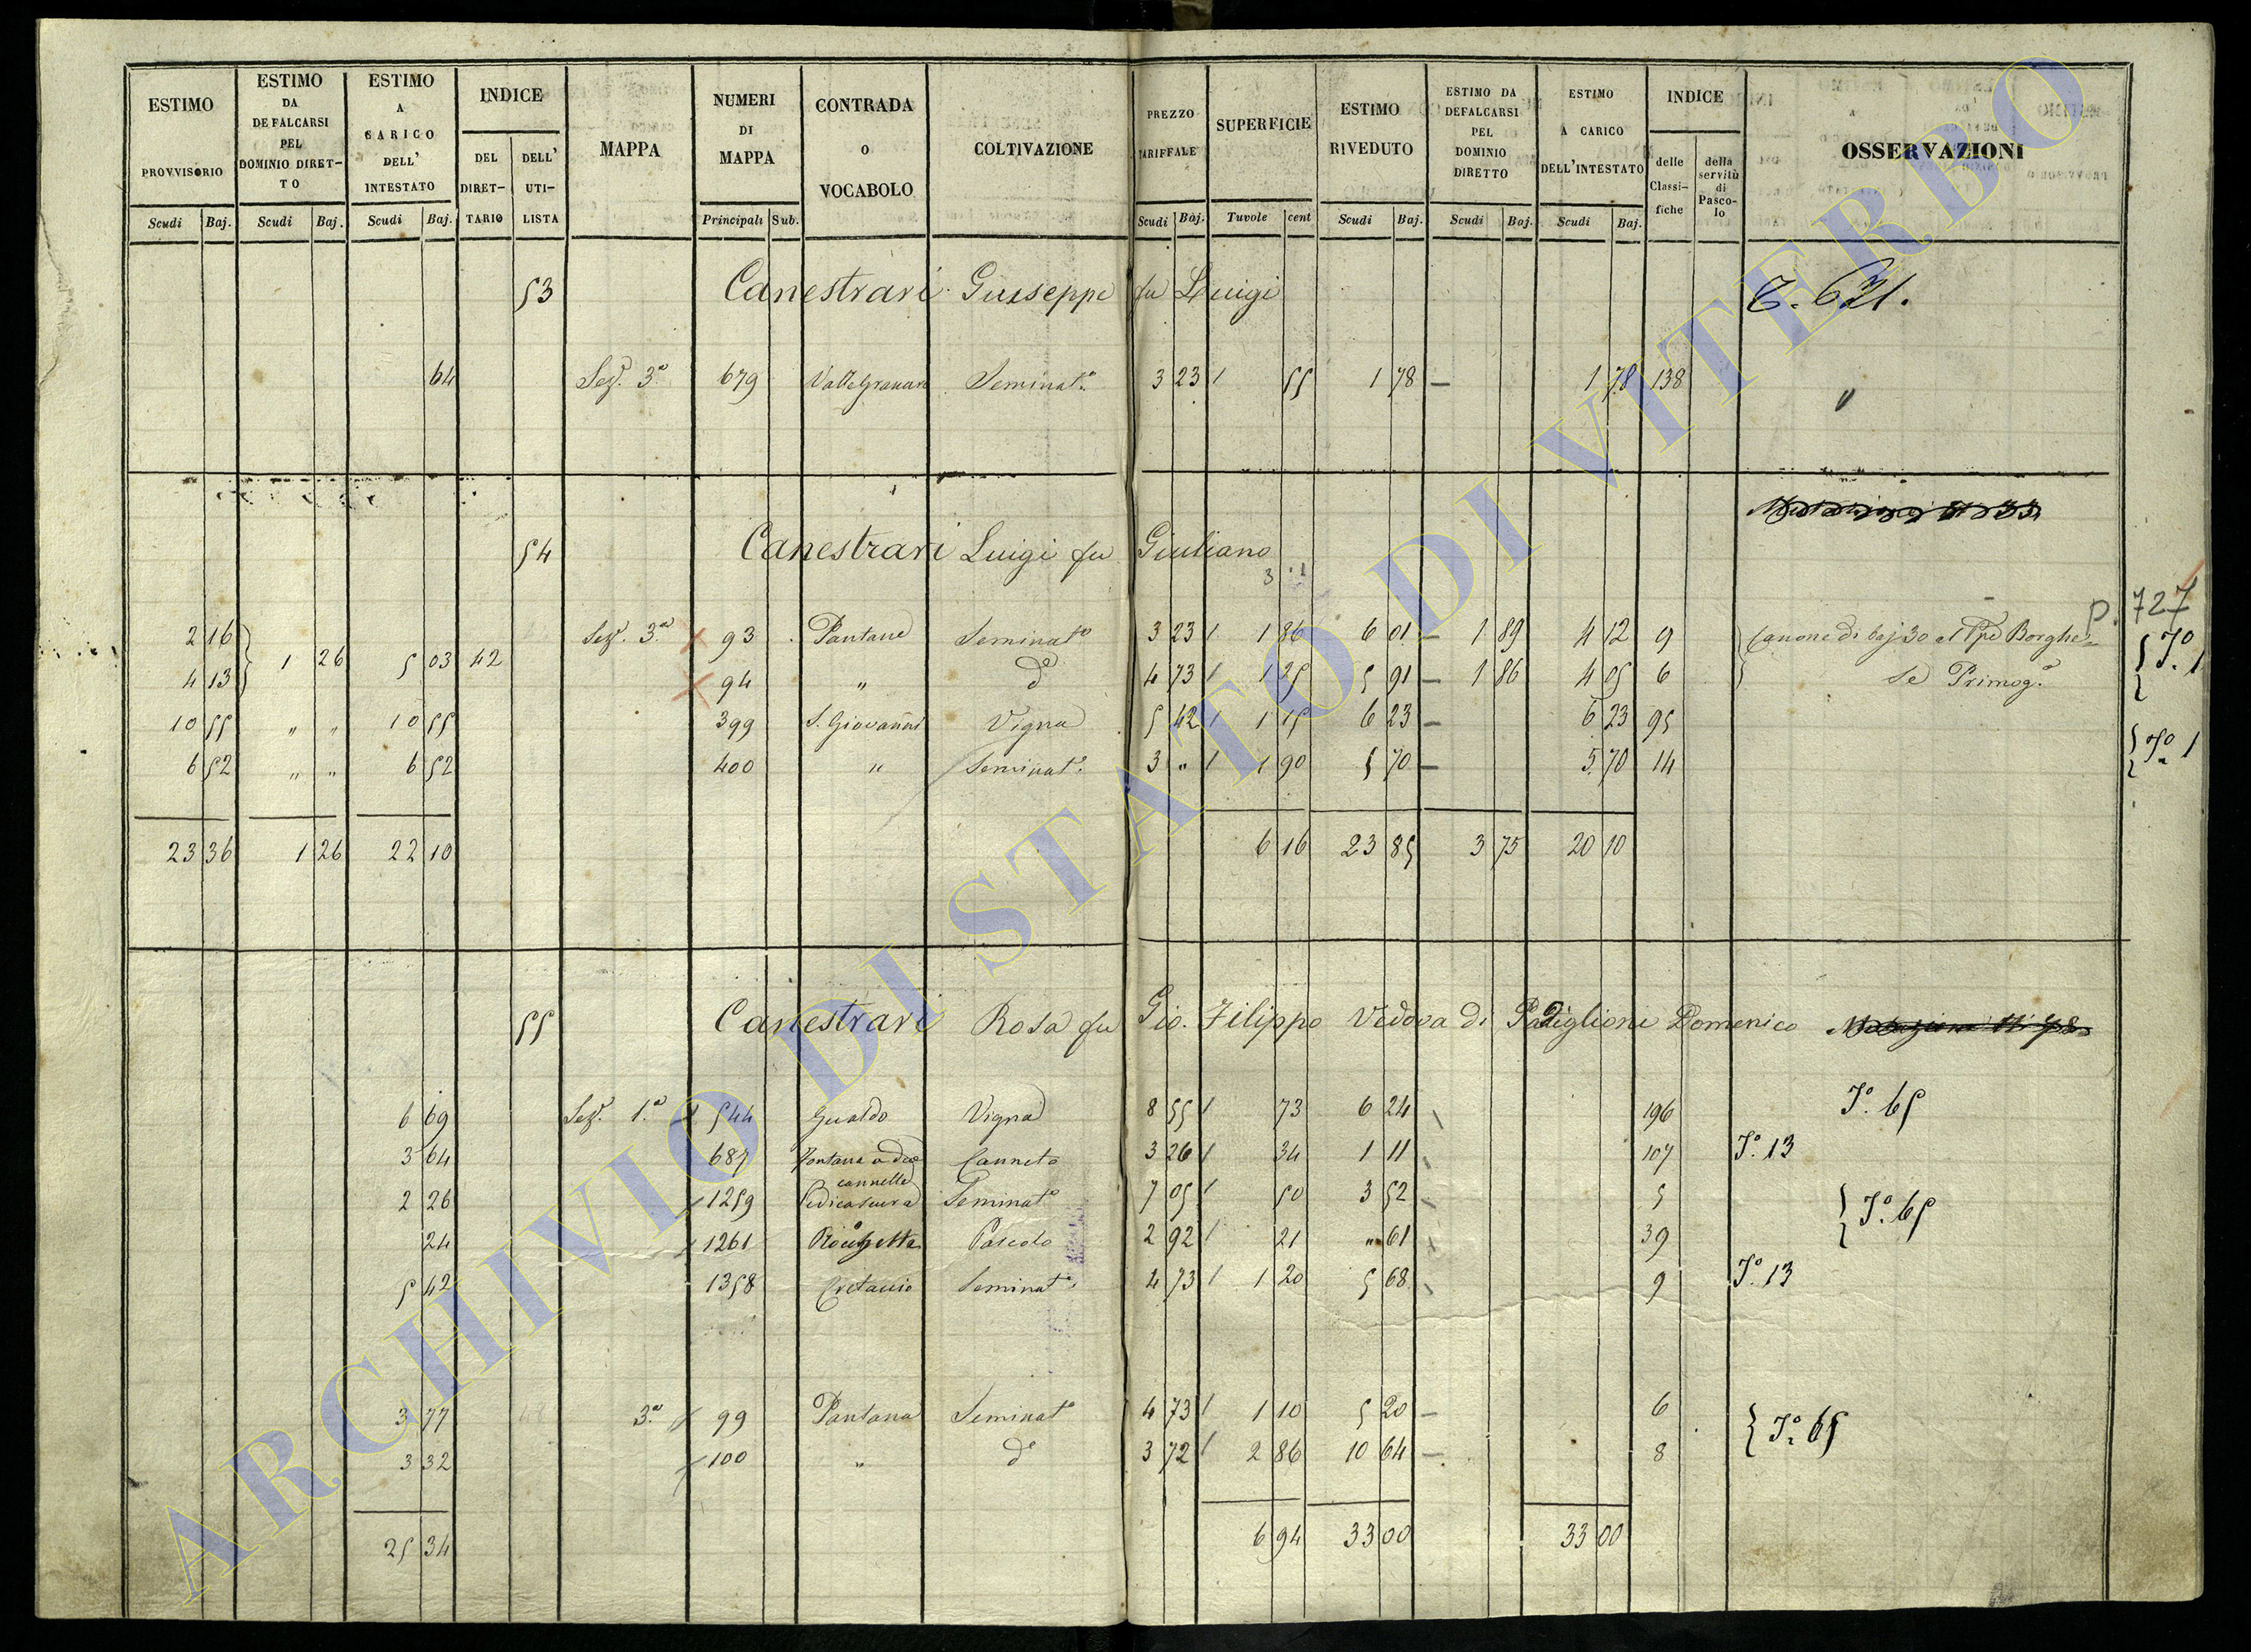 ESTIMO PROVVISORIO Scudi Baj. | ESTIMO DA DEFALCARSI PEL DOMINIO DIRET-TO Scudi Baj. | ESTIMO A CARICO DELL' INTESTATO Scudi Baj. | INDICE DEL DIRET-TARIO DELL' UTI-LISTA | MAPPA | NUMERI DI MAPPA Principali Sub. | CONTRADA O VOCABOLO | COLTIVAZIONE | PREZZO TARIFFALE Scudi Baj. | SUPERFICIE Tavole cent | ESTIMO RIVEDUTO Scudi Baj. | ESTIMO DA DEFALCARSI PEL DOMINIO DIRETTO Scudi Baj. | ESTIMO A CARICO DELL'INTESTATO Scudi Baj. | INDICE delle Classi-fiche della servitù di Pasco-lo | OSSERVAZIONI
53 Canestrari Giuseppe fu Luigi
64 Sezᵉ. 3ᵃ 679 Seminatᵒ. 3 23 1 55 1 78 — 1 78 138 "
54 Canestrari Luigi fu Giuliano
3
p. 727
2 16 Sezᵉ. 3.ᵃ 93 Pantane Seminatᵒ 3 23 1 86 6 01 — 1 89 4 12 9 Canone di baj 30 al Ppe Borghe=
1 26 5 03 42
4 13 94 " dᵒ 4 73 1 25 5 91 — 1 86 4 05 6 se Primogᵃ.
10 55 " " 10 55 399 S. Giovanni Vigna 5 42 1 15 6 23 — 6 23 95
6 52 " " 6 52 400 " Seminatᵒ. 3 " 1 90 5 70 — 5 70 14
23 36 1 26 22 10 6 16 23 85 3 75 20 10
55 Canestrari Rosa fu Gio. Filippo Vedova di Padiglioni Domenico
6 69 Sezᵉ. 1.ᵃ 544 Gualdo Vigna 8 55 73 6 24 196 Tᵒ. 65
3 64 687 Fontana a due cannelle Canneto 3 26 34 1 11 107 Tᵒ. 13
2 26 1259 Seminatᵒ 7 05 50 3 52 5 Tᵒ. 65
24 1261 Rocchetta Pascolo 2 92 21 " 61 39
5 42 1358 Cretaccio Seminatᵒ. 4 73 1 20 5 68 9 Tᵒ. 13
3 77 3.ᵃ 99 Pantana Seminatᵒ 4 73 1 10 5 20 — 6 Tᵒ. 65
3 32 100 " dᵒ 3 72 2 86 10 64 — 8
25 34 6 94 33 00 33 00
ARCHIVIO DI STATO DI VITERBO